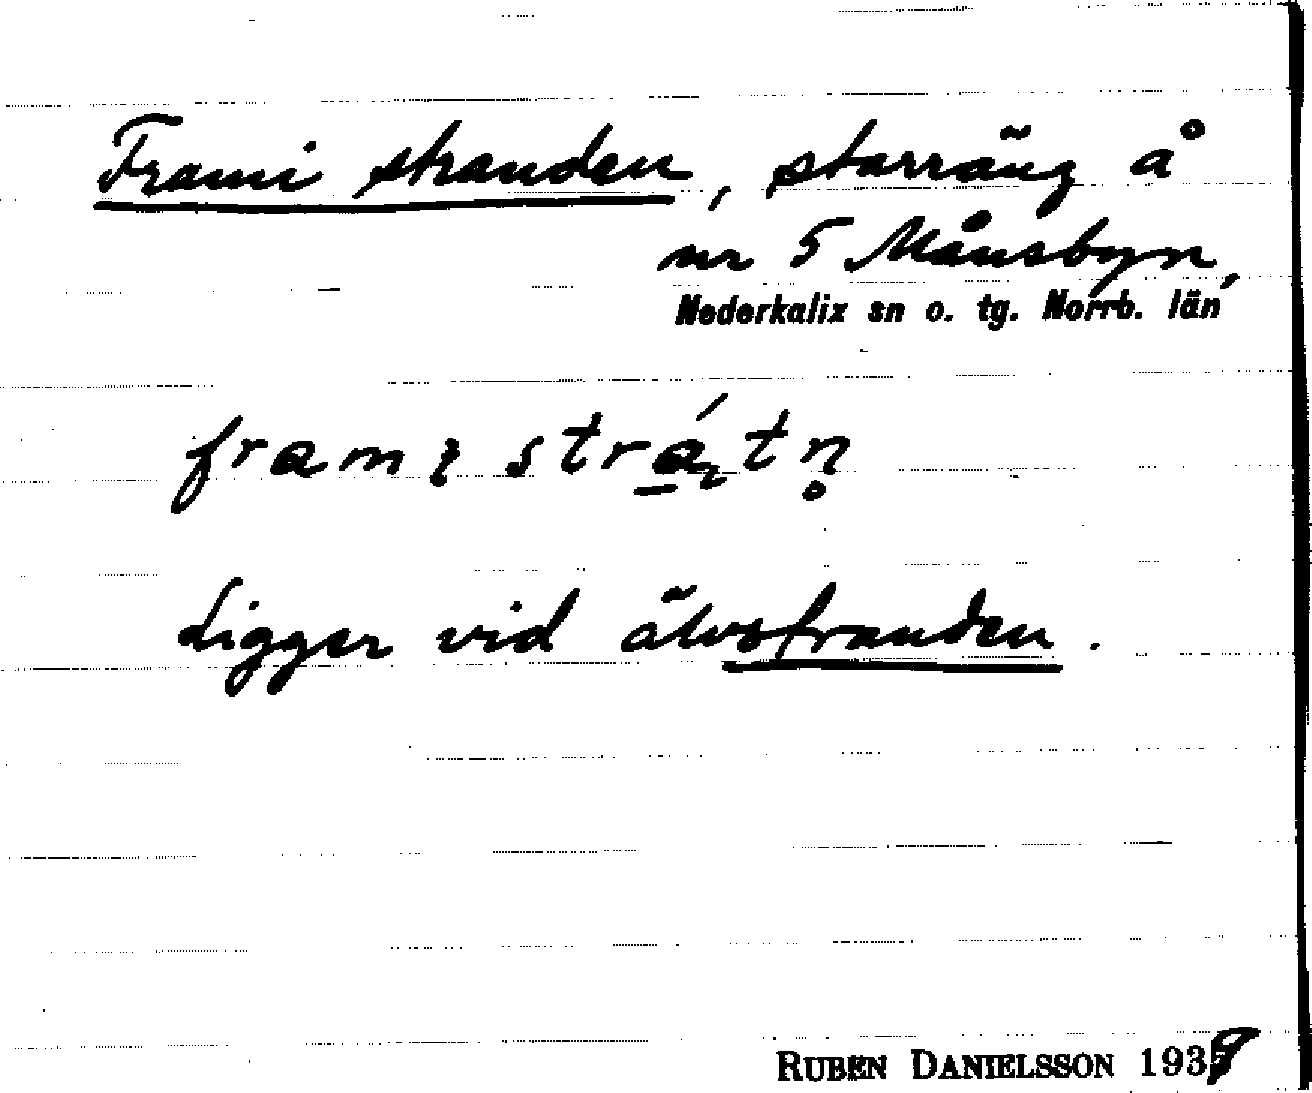 Frami stranden, starräng å
nr 5 Månsbyn,
Nederkalix sn o. tg. Norrb. län
Ligger vid älvstranden.
RUBEN DANIELSSON 1939